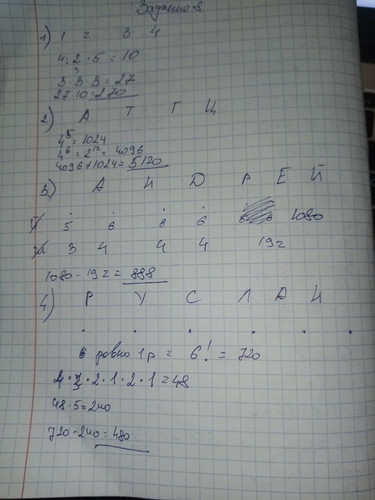 Задание 8
1) 1 2 3 4
4 · 2 · 5 = 10
3 · 3 · 3 = 27
27 · 10 = 270
2) А Т Г Ц
4⁵ = 1024
4⁶ = 2¹² = 4096
4096 + 1024 = 5120
3) А Н Д Р Е Й
5 6 6 6 1080
3 4 4 4 192
1080 - 192 = 888
4) Р У С Л А Н
. . . . . .
6 равно 1 р = 6! = 720
· 2 · 1 · 2 · 1 = 48
48 · 5 = 240
720 - 240 = 480